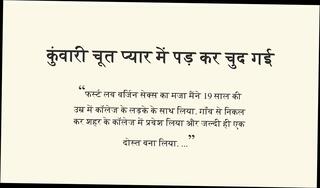 कुंवारी चूत प्यार में पड़ कर चुद गई
“फर्स्ट लव वर्जिन सेक्स का मजा मैंने 19 साल की
उम्र में कॉलेज के लड़के के साथ लिया. गाँव से निकल
कर शहर के कॉलेज में प्रवेश लिया और जल्दी ही एक
दोस्त बना लिया. ...”